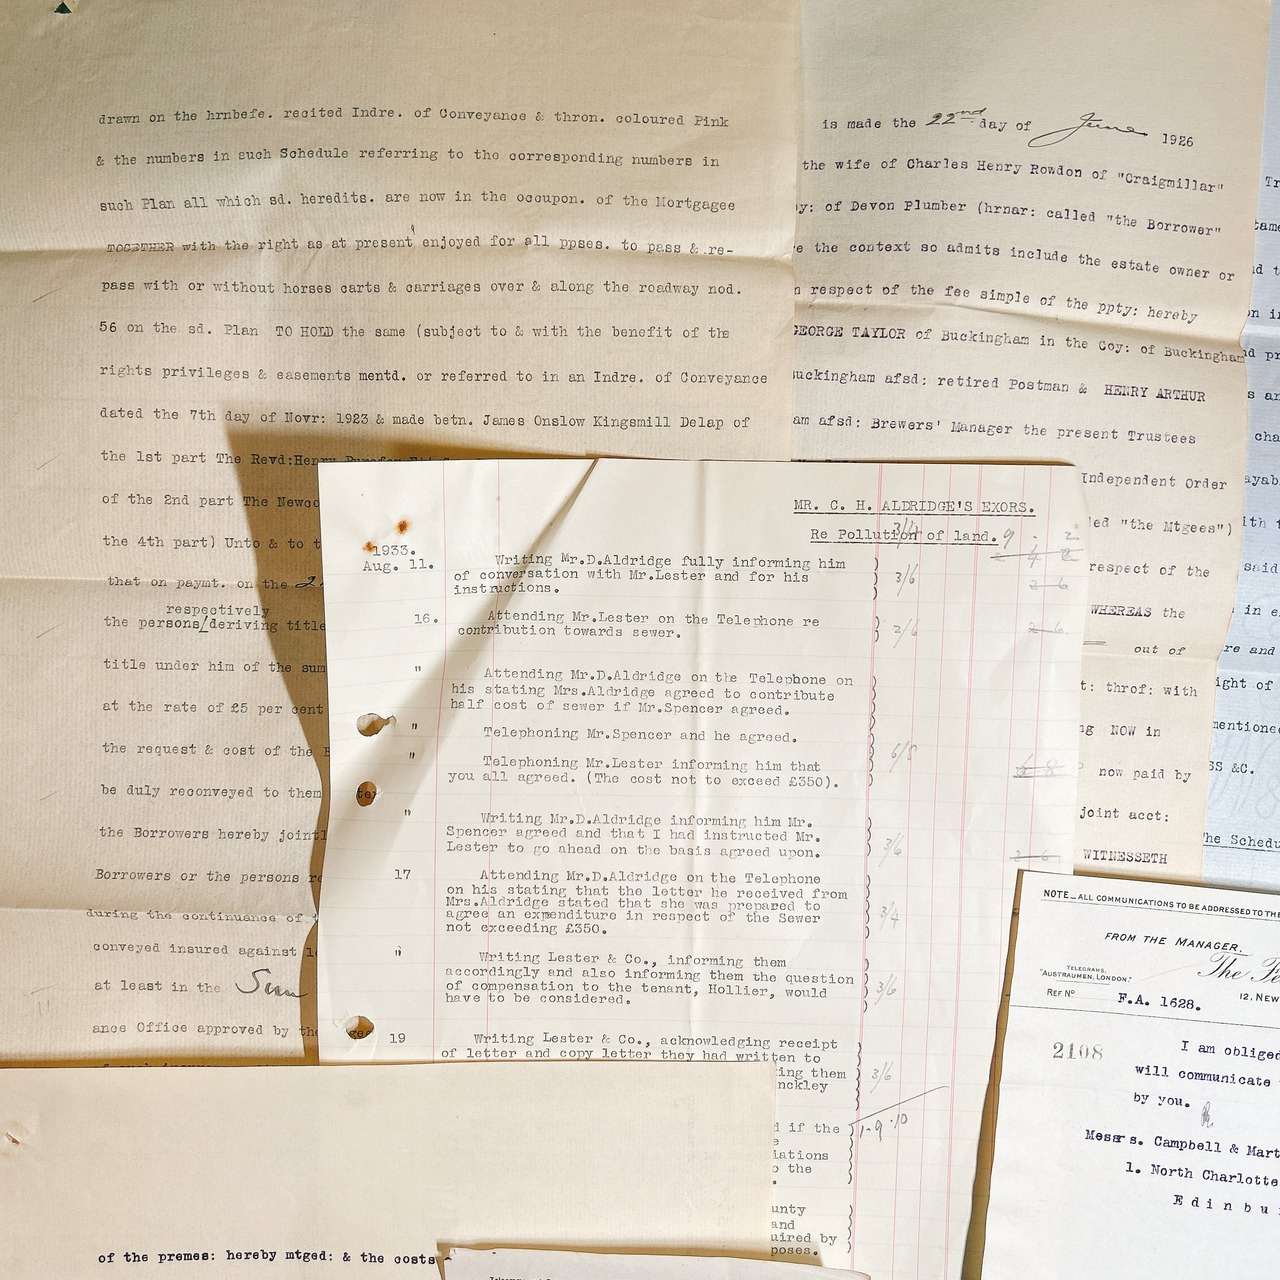 drawn on the hrnbefe. recited Indre. of Conveyance & thron. coloured Pink
& the numbers in such Schedule referring to the corresponding numbers in
such Plan all which sd. heredits. are now in the occupon. of the Mortgagee
TOGETHER with the right as at present enjoyed for all ppses. to pass & re-
pass with or without horses carts & carriages over & along the roadway nod.
56 on the sd. Plan TO HOLD the same (subject to & with the benefit of the
rights privileges & easements mentd. or referred to in an Indre. of Conveyance
dated the 7th day of Novr: 1923 & made betn. James Onslow Kingsmill Delap of
the 1st part The Revd:Henry
of the 2nd part The Newco
the 4th part) Unto & to t
that on paymt. on the 2
respectively
the persons/deriving title
title under him of the sum
at the rate of £5 per cent
the request & cost of the B
be duly reconveyed to them
the Borrowers hereby jointl
Borrowers or the persons re
during the continuance of
conveyed insured against l
at least in the Sun
ance Office approved by the
of the premes: hereby mtged: & the costs
is made the 22nd day of June 1926
the wife of Charles Henry Rowdon of "Craigmillar"
y: of Devon Plumber (hrnar: called "the Borrower"
e the context so admits include the estate owner or
n respect of the fee simple of the ppty: hereby
GEORGE TAYLOR of Buckingham in the Coy: of Buckingham
Buckingham afsd: retired Postman & HENRY ARTHUR
am afsd: Brewers' Manager the present Trustees
Independent Order
led "the Mtgees")
respect of the
WHEREAS the
out of
t: throf: with
ng NOW in
now paid by
joint acct:
WITNESSETH
Tr
tame
d t
on in
d pr
s an
cha
ayab
ith t
said
in e
re and
ight of
mentioned
SS &C.
The Schedu
MR. C. H. ALDRIDGE'S EXORS.
Re Pollution of land.
1933.
Aug. 11. Writing Mr.D.Aldridge fully informing him
of conversation with Mr.Lester and for his 3/6
instructions.
16. Attending Mr.Lester on the Telephone re
contribution towards sewer. 2/6
" Attending Mr.D.Aldridge on the Telephone on
his stating Mrs.Aldridge agreed to contribute
half cost of sewer if Mr.Spencer agreed.
" Telephoning Mr.Spencer and he agreed.
" Telephoning Mr.Lester informing him that 6/8
you all agreed. (The cost not to exceed £350).
" Writing Mr.D.Aldridge informing him Mr.
Spencer agreed and that I had instructed Mr. 3/6
Lester to go ahead on the basis agreed upon.
17 Attending Mr.D.Aldridge on the Telephone
on his stating that the letter he received from
Mrs.Aldridge stated that she was prepared to
agree an expenditure in respect of the Sewer 3/4
not exceeding £350.
" Writing Lester & Co., informing them
accordingly and also informing them the question
of compensation to the tenant, Hollier, would 3/6
have to be considered.
19 Writing Lester & Co., acknowledging receipt
of letter and copy letter they had written to
ing them 3/6
nckley
d if the 1-9-10
e
iations
o the
unty
and
uired by
poses.
NOTE_ALL COMMUNICATIONS TO BE ADDRESSED TO THE
FROM THE MANAGER.
TELEGRAMS,
"AUSTRAUMEN, LONDON."
The Fe
12, NEW
REF No F.A. 1628.
2108
I am obliged
will communicate
by you.
Messrs. Campbell & Mart
1. North Charlotte
Edinbu